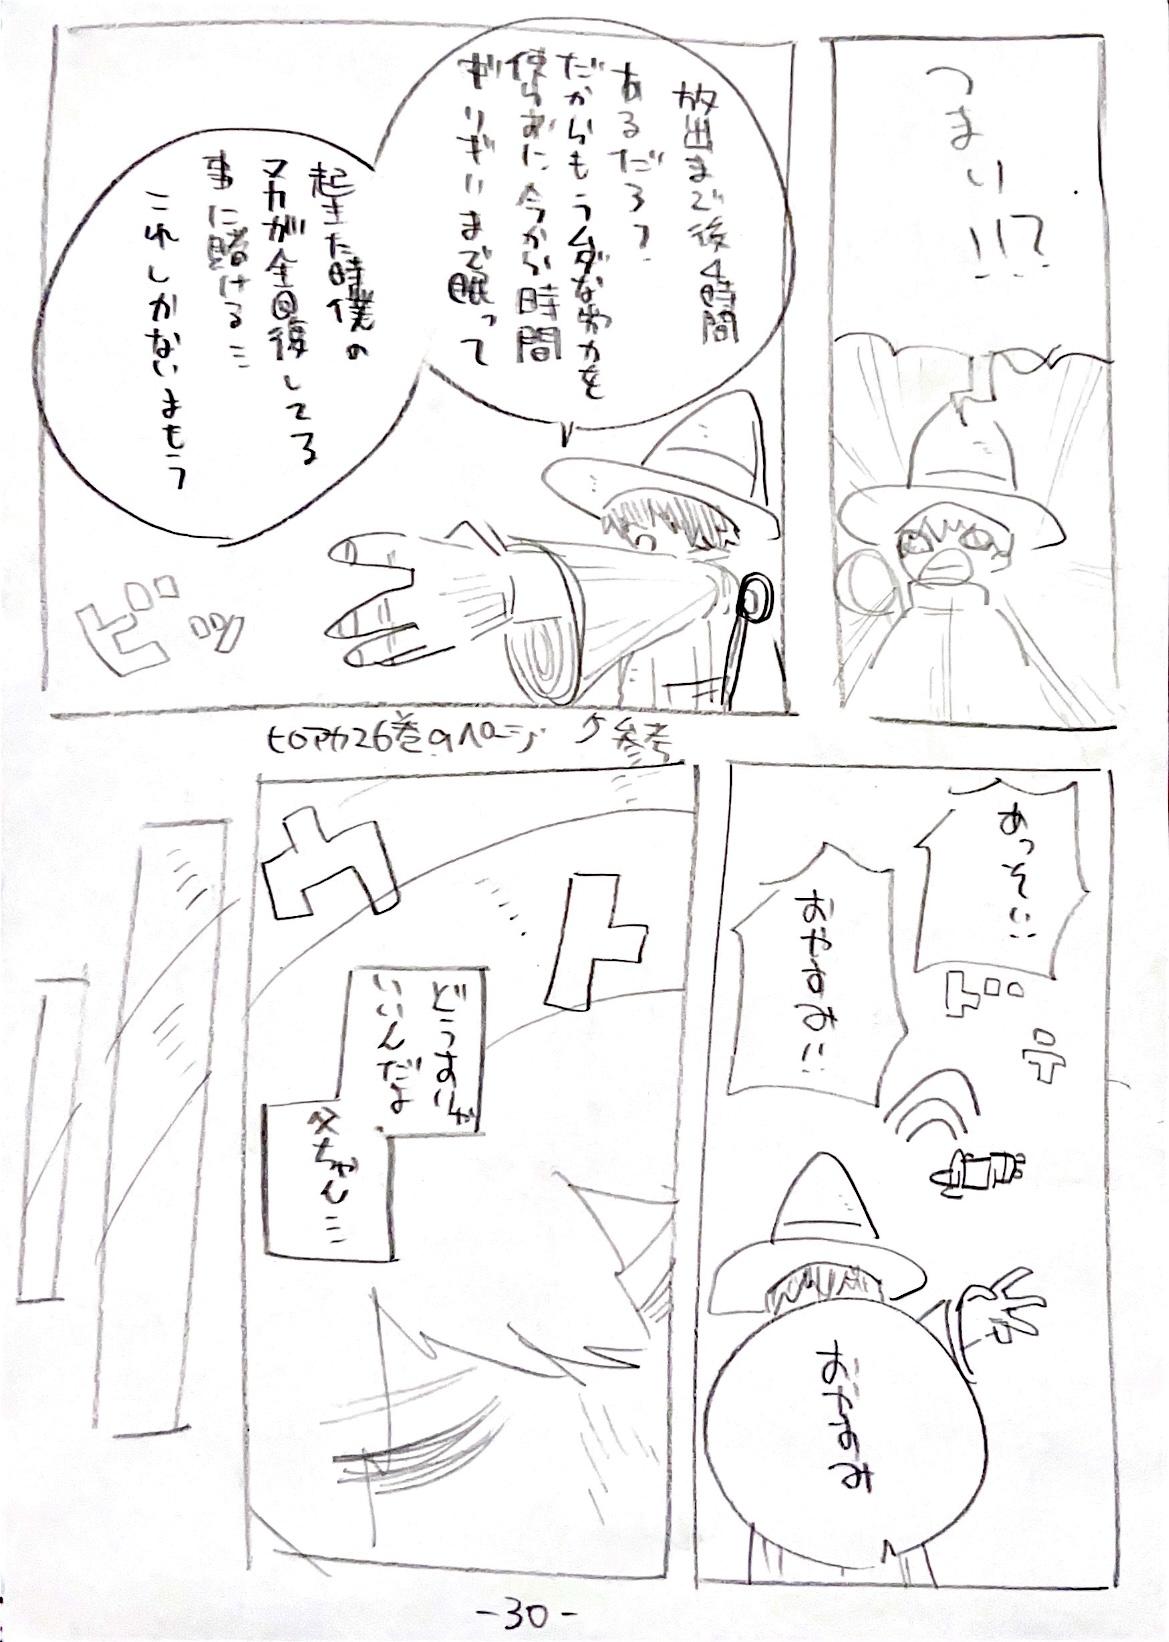 つまり!!?
放出まで後4時間
あるだろ?
だからもうムダな労力を
使わずに今から時間
ギリギリまで眠って
起きた時僕の
マカが全回復してる
事に賭ける…
これしかないまもう
ビッ
ヒロアカ26巻のページ
参考
あっそ!!
おやすみ!!
おやすみ
ドウ
どうすりゃ
いいんだよ
父ちゃん…
-30-